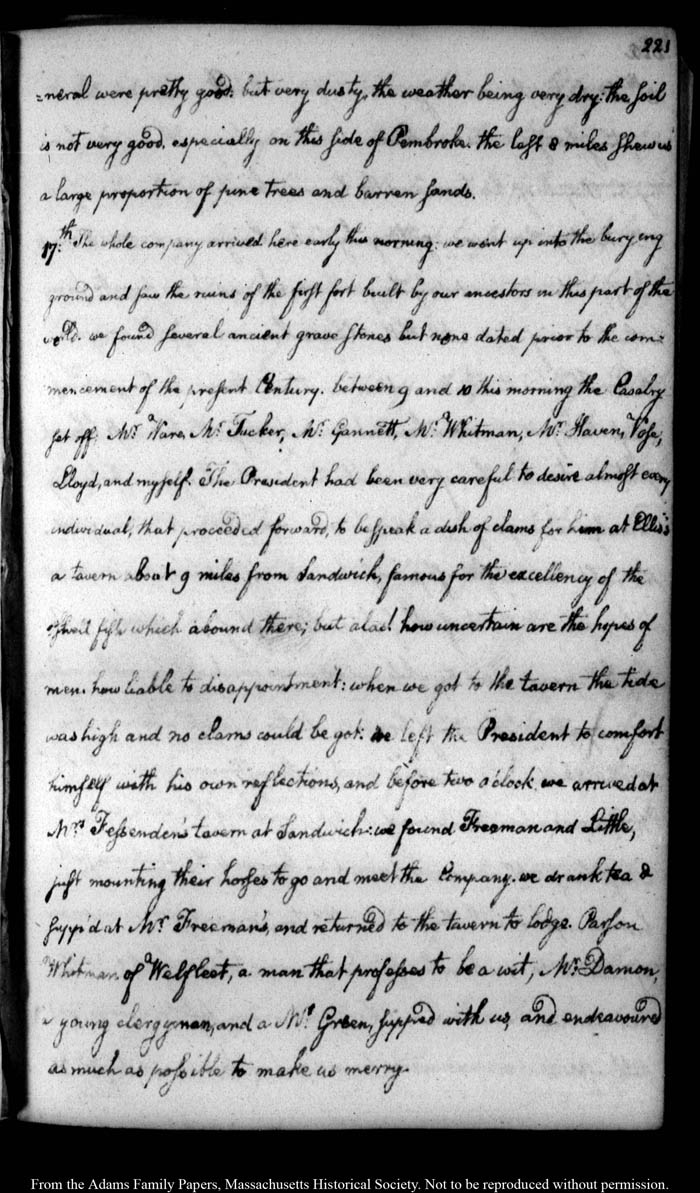 221
=neral were pretty good: but very dusty, the weather being very dry: the soil
is not very good, especially on this side of Pembroke. the last 8 miles shew us
a large proportion of pine trees and barren sands.
17.th The whole company arrived here early this morning: we went up into the burying
ground and saw the ruins of the first fort built by our ancestors in this part of the
world. we found several ancient grave stones but none dated prior to the com=
mencement of the present Century. between 9 and 10 this morning the Cavalry
set off; Mr. Ware, Mr. Tucker, Mr. Gannett, Mr. Whitman, Mr. Haven, Vose,
Lloyd, and myself. The President had been very careful to desire almost every
individual, that proceeded forward, to bespeak a dish of clams for him at Ellis's
a tavern about 9 miles from Sandwich, famous for the excellency of the
shell fish which abound there; but alas! how uncertain are the hopes of
men. how liable to disappointment: when we got to the tavern the tide
was high and no clams could be got: we left the President to comfort
himself with his own reflections, and before two o'clock we arrived at
Mrs. Fessenden's tavern at Sandwich: we found Freeman and Little,
just mounting their horses to go and meet the Company. we drank tea &
supp'd at Mr. Freeman's, and returned to the tavern to lodge. Parson
Whitman of Welfleet, a man that professes to be a wit, Mr. Damon,
a young clergyman, and a Mr. Green, supped with us, and endeavoured
as much as possible to make us merry.
From the Adams Family Papers, Massachusetts Historical Society. Not to be reproduced without permission.